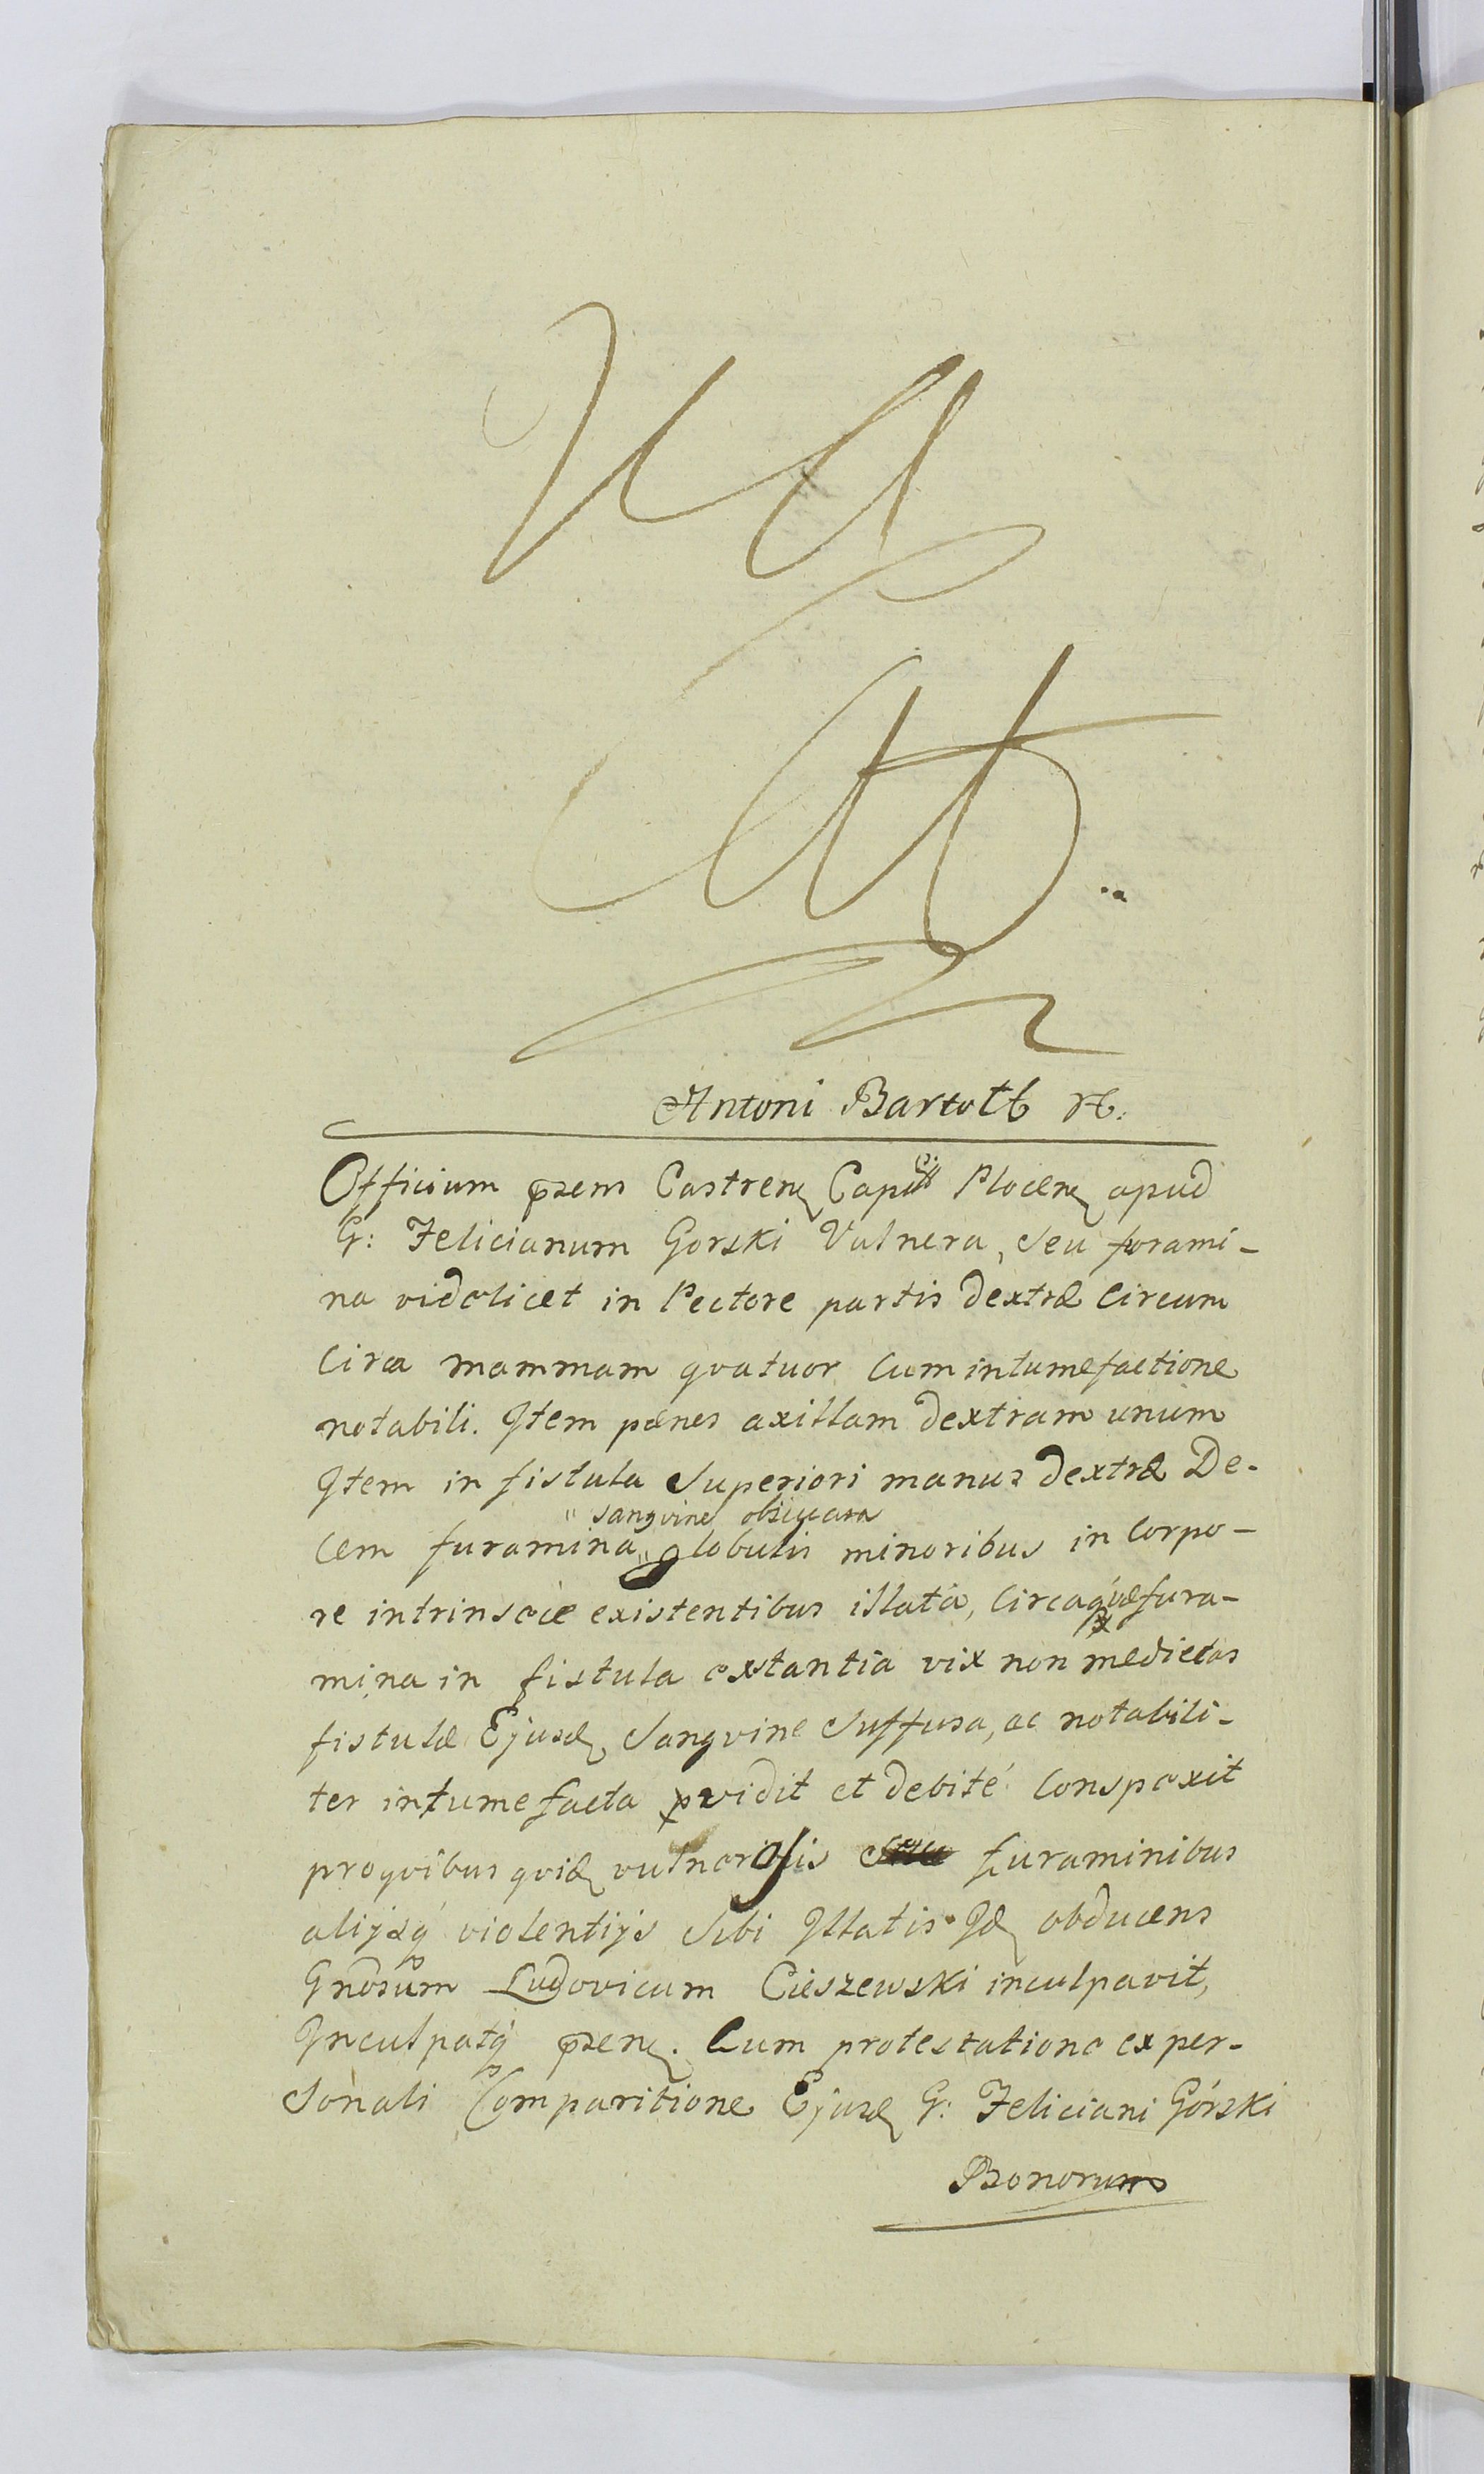 Antoni Bartolt
Officium pzens Castren Capit Plocen apud
G: Felicianum Gorski Vulnera, seu forami-
na videlicet in Pectore partis dextræ circum
circa mammam qvatuor cum intumefactione
notabili. Item pænes axillam dextram unum
Item in fistula superiori manus dextræ De-
cem furamina "sangvine obscurara" globulis minoribus in corpo-
re intrinsecè existentibus illata, circaqvæ fura-
mina in fistula extantia vix non medietas
fistulæ Ejusd sangvine suffusa, ac notabili-
ter intumefacta vidit et debité conspexit
proqvibus qvid vulneribus furaminibus
alijsq violentijs sibi Illatis Id obducens
Gnosum Ludovicum Cieszewski inculpavit,
Inculpatq pzen. Cum protestatione ex per-
sonali Comparitione Ejusd G: Feliciani Górski
Bonorum